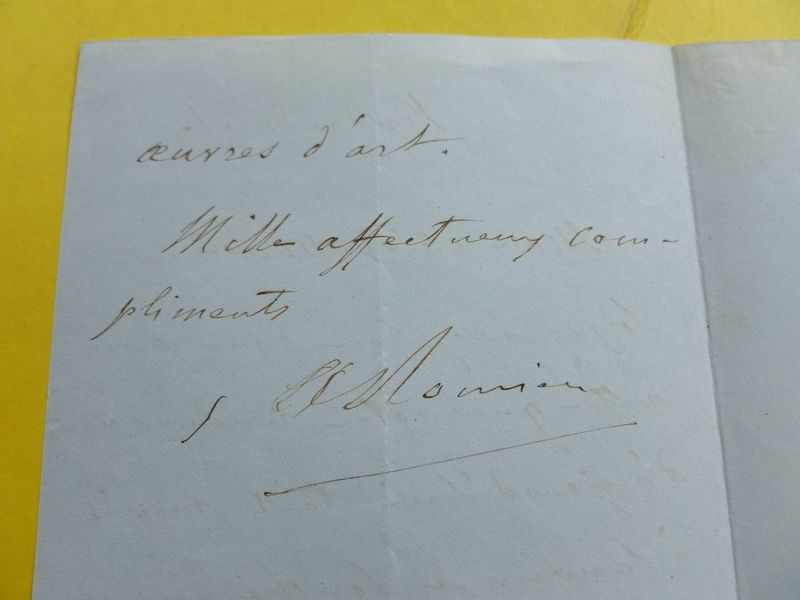 œuvres d'art.
Mille affectueux com-
pliments
Romieu